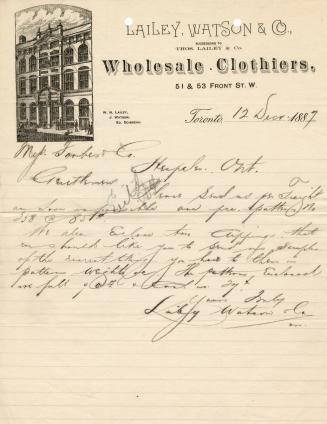 LAILEY, WATSON & CO.,
SUCCESSORS TO
THOS. LAILEY & CO.
Wholesale Clothiers,
51 & 53 FRONT ST. W.
W. H. LAILEY,
J. WATSON,
ED. SCHEENK.
Toronto, 12 Dec 1887
Messrs Forbes & Co.
Hespeler Ont.
Gentlemen
Please Send us per Freight
as soon as possible one pce pattern No
We also Enclose two Clippings that
we should like you to send us samples
of the nearest things you have to them in
pattern weight &c. The pattern Enclosed
Yours Truly
Lailey Watson & Co